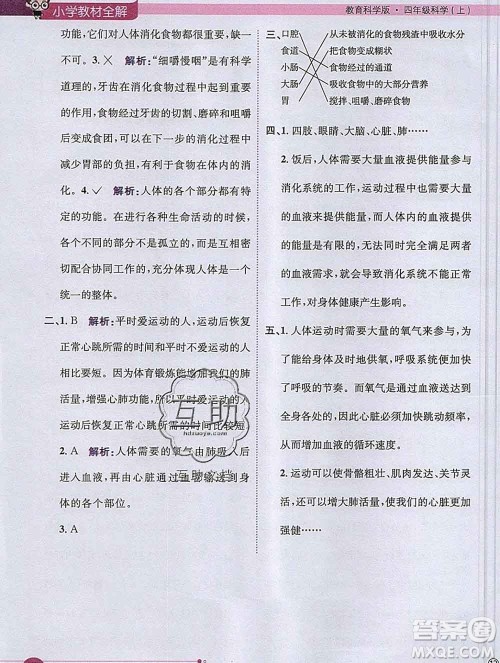 小学教材全解
教育科学版·四年级科学(上)
功能，它们对人体消化食物都有重要
作用。3.× 解析:“细嚼慢咽”是有科学
道理的，牙齿在消化食物过程中有重
要的作用，食物经过牙齿的切、磨碎和
咀嚼变成团，可以在下一步的消化过程中
减少胃部的负担，有利于食物在体内的消
化。4.✓ 解析:人体的各个部分都有特
定的功能。在进行各种生命活动的时候，
各个不同的部分不是孤立的，而是互相
协同工作的，在体内形成一个复杂而又
统一的整体。
二、1. B 解析:平时爱运动的人，运动后恢复
正常心跳所需的时间和平时不爱运动的人
相比要短。体育锻炼能够提高人体心肺功能，
增大肺活量，所以平时爱运动的人运动
后恢复正常心跳所需的时间比较短。
2. A 解析:人体需要的氧气由肺吸入后
进入血液，再由心脏压出送到人体的各
个部位。
3. A
三、口腔 从未被消化的食物残渣中吸收水分
食道 把食物变成糊状
小肠 食物经过的通道
大肠 吸收食物中的大部分营养
胃 搅拌、咀嚼、磨碎食物
四、1. 四肢、眼睛、大脑、心脏、肺……
2. 饭后，人体需要大量血液提供能量参与
消化系统的工作，运动过程中，人体也
需要大量血液提供能量，无法为消化系
统提供能量，或者无法完全同时满足两者
的需要，而使得血液的能量供应不足，对
人体身体健康产生影响。
五、1. 人体运动时需要大量的氧气来产生能
量，为了及时供氧，呼吸系统会加快呼吸
的节奏。而氧气是通过血液运送到达全
身各处的，所以心脏也会加快跳动频率，
从而增加血液的循环速度。
2. 运动可以使骨骼粗壮、肌肉发达、关节灵
活，还可以增大肺活量，使我们的心脏更
强健……
互助
hdzuoye.com
互助文档
答案圈
MXQE.COM